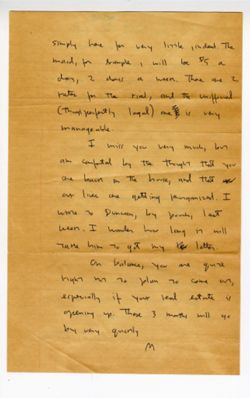 simply here for very little, indeed. The
maid, for example, will be $5 a
day, 2 days a week. There are 2
rates for the rial, and the unofficial
(though perfectly legal) one is very
manageable.
I miss you very much, but
am comforted by the thought that you
are back in the house, and that
our lives are getting reorganized. I
wrote to Duncan, by pouch, last
week. I wonder how long it will
take him to get my letter.
On balance, you are quite
right not to plan to come out,
especially if your real estate is
opening up. These 3 months will go
by very quickly
M